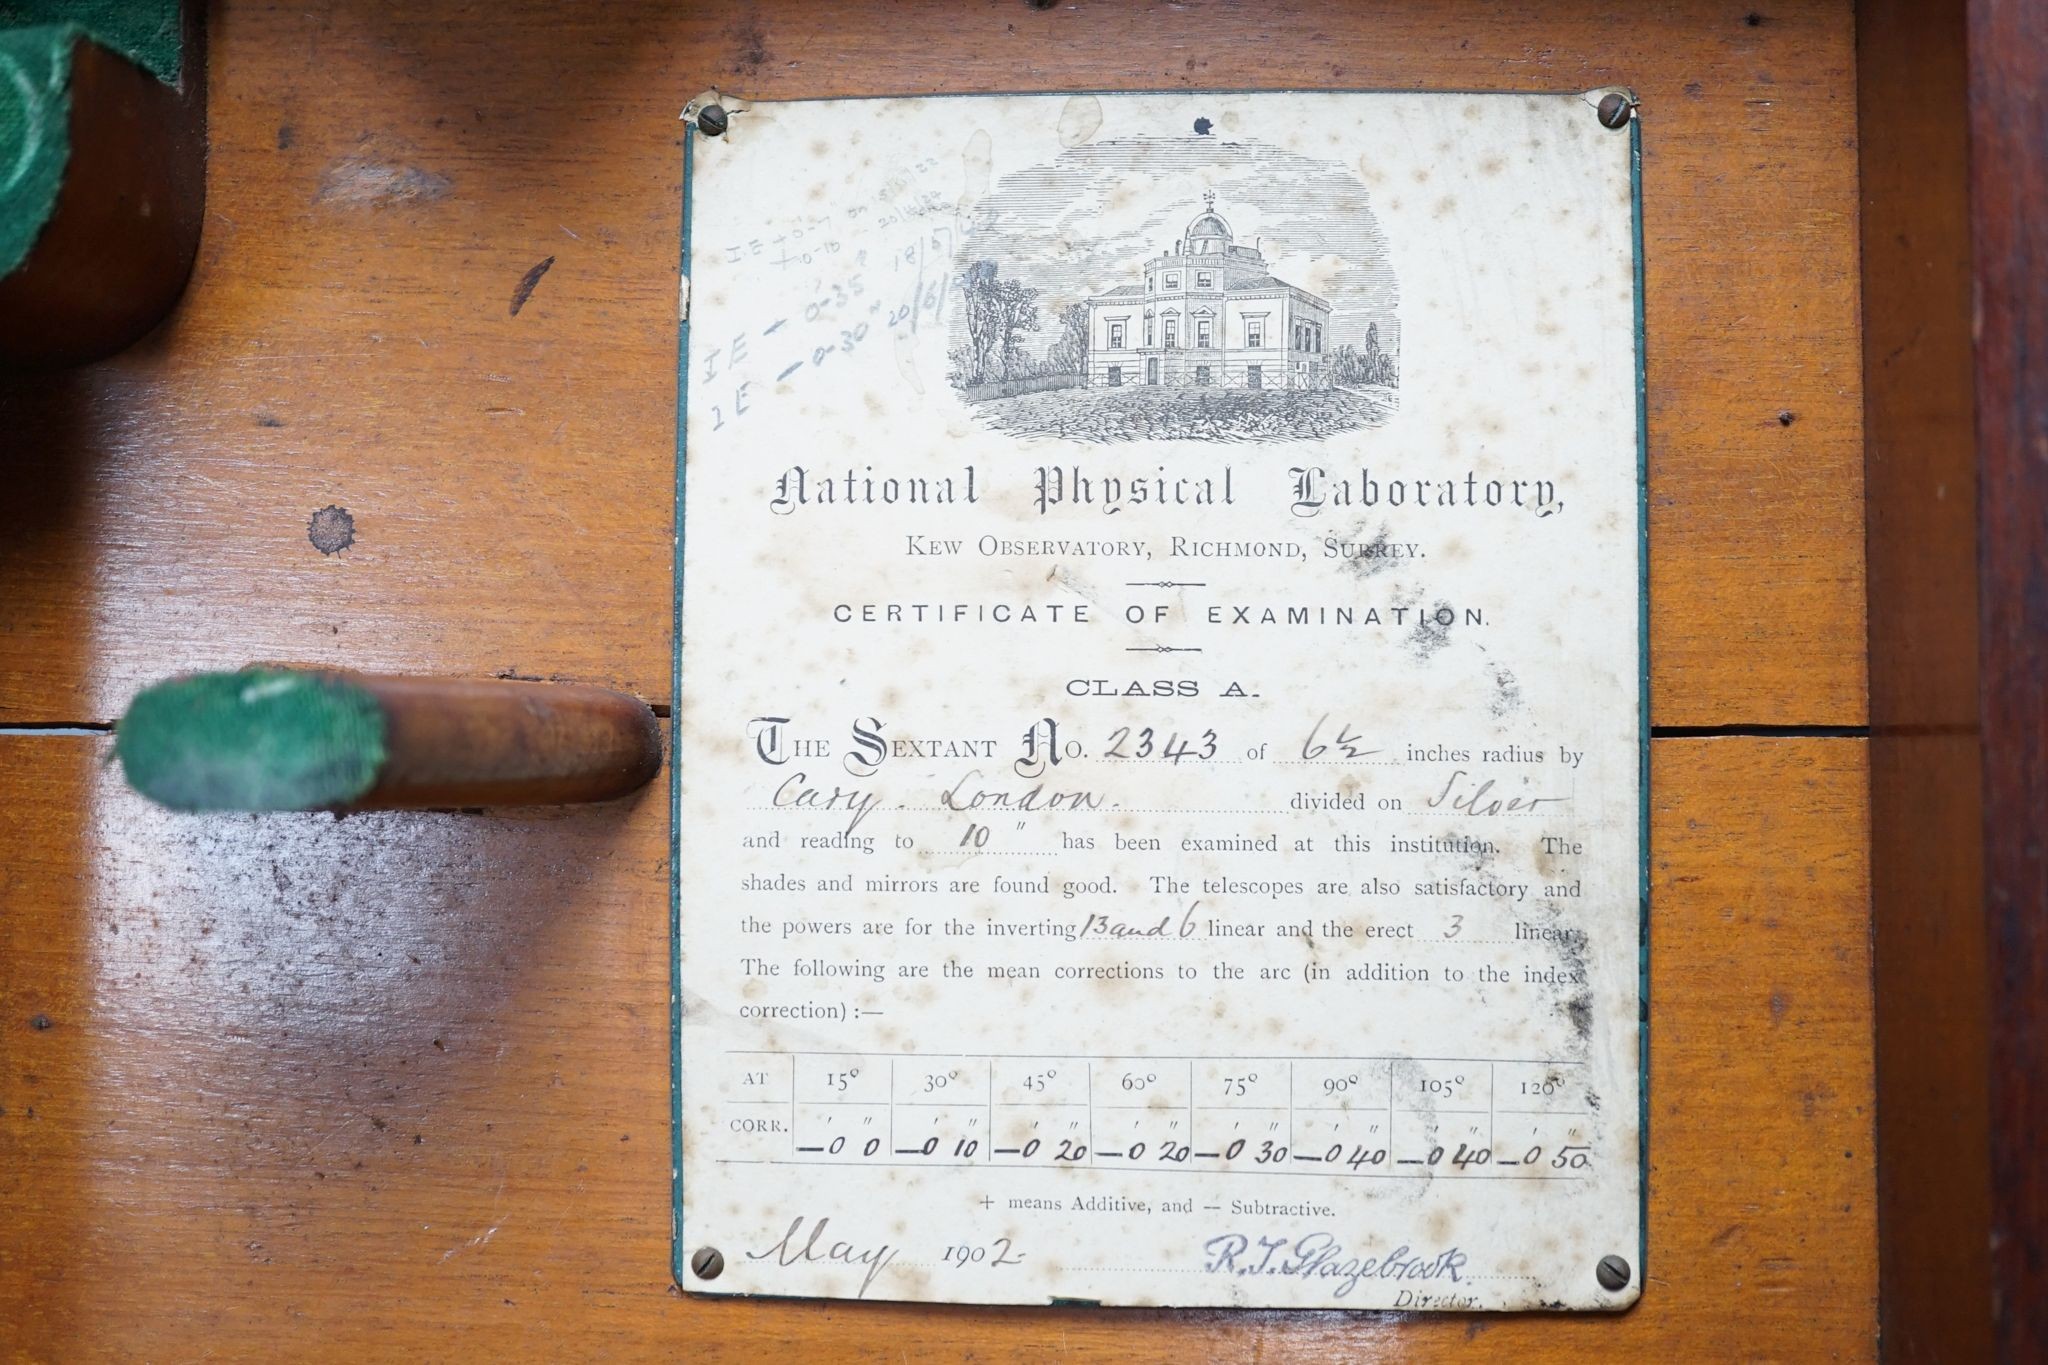 I.E + 0-10
I E - 0-35" 18/
I E - 0-30" 20/6/
National Physical Laboratory,
KEW OBSERVATORY, RICHMOND, SURREY.
CERTIFICATE OF EXAMINATION.
CLASS A.
THE SEXTANT NO. 2343 of 6½ inches radius by
Cary. London. divided on Silver
and reading to 10" has been examined at this institution. The
shades and mirrors are found good. The telescopes are also satisfactory and
the powers are for the inverting 13 and 6 linear and the erect 3 linear.
The following are the mean corrections to the arc (in addition to the index
correction) :—
AT 15° 30° 45° 60° 75° 90° 105° 120°
' " ' " ' " ' " ' " ' " ' " ' "
CORR. —0 0 —0 10 —0 20 —0 20 —0 30 —0 40 —0 40 —0 50
+ means Additive, and — Subtractive.
May 1902 R.T. Glazebrook.
Director.